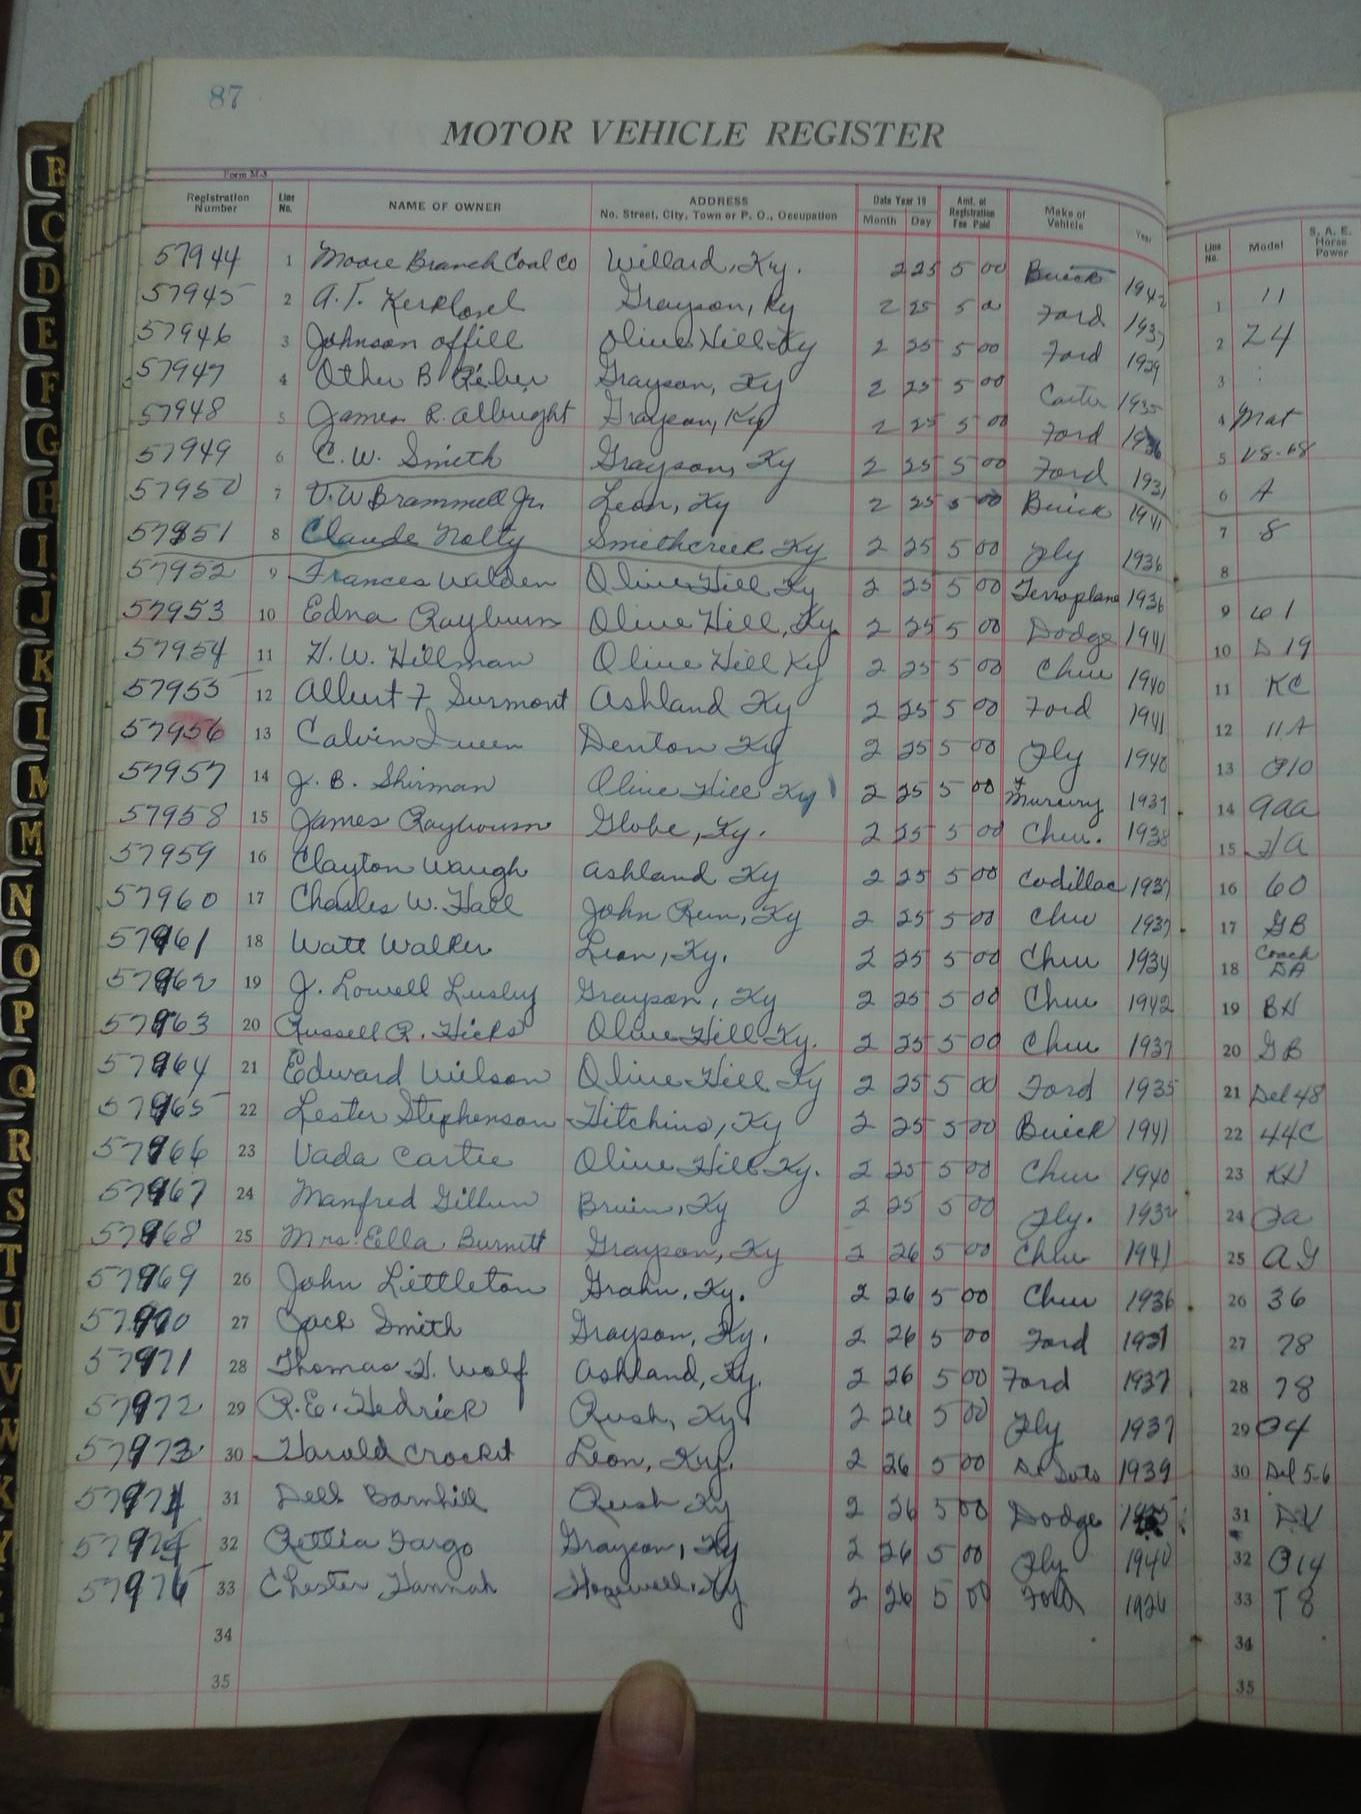 87
MOTOR VEHICLE REGISTER
Form M-3
Registration Number Line No. NAME OF OWNER ADDRESS No. Street, City, Town or P. O., Occupation Date Year 19 Month Day Amt. of Registration Fee Paid Make of Vehicle Year Line No. Model S. A. E. Horse Power
57944 1 Moore Branch Coal Co Willard, Ky. 2 25 5 00 Buick 1942 1 11
57945 2 A.T. Grayson, Ky 2 25 5 00 Ford 1937 2 74
57946 3 Johnson Offill Olive Hill Ky 2 25 5 00 Ford 1929 3
57947 4 Other B Grayson, Ky 2 25 5 00 1935 4
57948 5 James R. Albright Grayson, Ky 2 25 5 00 Ford 1936 5 V8-68
57949 6 C.W. Smith Grayson, Ky 2 25 5 00 Ford 1931 6 A
57950 7 V.W Brammell Jr. Leon, Ky 2 25 5 00 Buick 1941 7 8
57951 8 Claude Nolty Smithcreek Ky 2 25 5 00 Ply 1936 8
57952 9 Frances Walden Olive Hill Ky 2 25 5 00 Terraplane 1936 9 61
57953 10 Edna Rayburn Olive Hill, Ky. 2 25 5 00 Dodge 1941 10 D 19
57954 11 H.W. Hillman Olive Hill Ky 2 25 5 00 Chev 1940 11 KC
57955 12 Albert F. Surmont Ashland Ky 2 25 5 00 Ford 1941 12 11A
57956 13 Calvin Queen Denton Ky 2 25 5 00 Ply 1940 13 P10
57957 14 J. B. Shirman Olive Hill Ky 2 25 5 00 Mercury 1939 14 99a
57958 15 James Raybourn Globe, Ky. 2 25 5 00 Chev. 1938 15
57959 16 Clayton Waugh Ashland Ky 2 25 5 00 Cadillac 1937 16 60
57960 17 Charles W. Hall John Run, Ky 2 25 5 00 Chev 1937 17 GB
57961 18 Watt Walker Leon, Ky. 2 25 5 00 Chev 1934 18 Coach DA
57962 19 J. Lowell Lusby Grayson, Ky 2 25 5 00 Chev 1942 19 BH
57963 20 Russell R. Hicks Olive Hill Ky. 2 25 5 00 Chev 1937 20 GB
57964 21 Edward Wilson Olive Hill Ky 2 25 5 00 Ford 1935 21 Del 48
57965 22 Lester Stephenson Hitchins, Ky 2 25 5 00 Buick 1941 22 44C
57966 23 Vada Carter Olive Hill Ky. 2 25 5 00 Chev 1940 23 KH
57967 24 Manfred Gillum Bruin, Ky 2 25 5 00 Ply. 24 Pa
57968 25 Mrs. Ella Burnitt Grayson, Ky 2 26 5 00 Chev 1941 25 AG
57969 26 John Littleton Grahn, Ky. 2 26 5 00 Chev 1936 26 36
57970 27 Jack Smith Grayson, Ky. 2 26 5 00 Ford 1937 27 78
57971 28 Thomas H. Wolf Ashland, Ky. 2 26 5 00 Ford 1937 28 78
57972 29 R.E. Hedrick Rush, Ky 2 26 5 00 Ply 1937 29 P4
57973 30 Harold Crockit Leon, Ky. 2 26 5 00 De Soto 1939 30 Del 5-6
57974 31 Dell Barnhill Rush Ky 2 26 5 00 Dodge 31 DU
57975 32 Rettia Fargo Grayson, Ky 2 26 5 00 Ply 1940 32 P14
57976 33 Chester Hannah Hopewell, Ky 2 26 5 00 Ford 1926 33 T 8
34 34
35 35
B
C
D
E
F
G
H
I
J
K
L
M
M
N
O
P
Q
R
S
T
U
V
W
K
Y